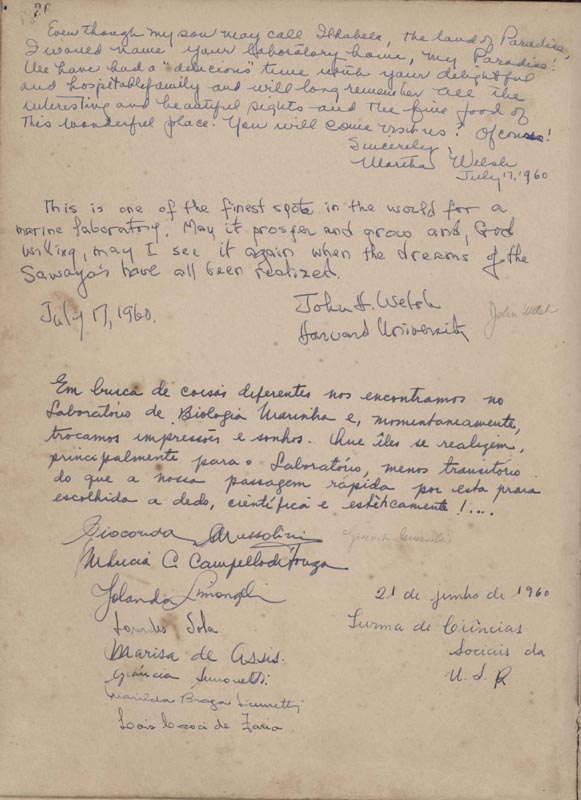 Even though my son may call Ilhabela, the land of Paradise,
I would name your laboratory home, my Paradise!
We have had a "delicious" time with your delightful
and hospitable family and will long remember all the
interesting and beautiful sights and the fine food of
this wonderful place. You will come visit us? Of course!
Sincerely,
Martha Welsh
July 17, 1960
This is one of the finest spots in the world for a
marine laboratory. May it prosper and grow and, God
willing, may I see it again when the dreams of the
Sawaya's have all been realized.
July 17, 1960.
John H. Welsh
Harvard University
John Welsh
Em busca de coisas diferentes nos encontramos no
Laboratório de Biologia Marinha e, momentaneamente,
trocamos impressões e sonhos. Que êles se realizem,
principalmente para o Laboratório, menos transitório
do que a nossa passagem rápida por esta praia
escolhida a dedo, científica e estèticamente!....
Gioconda Mussolini
Gioconda Mussolini
MLucia C Campello de Souza
Yolanda Simongli
21 de junho de 1960
Lourdes Sola
Turma de Ciências
Marisa de Assis.
Sociais da
Simonetti
U. S. P
Marilda Braga
de Faria